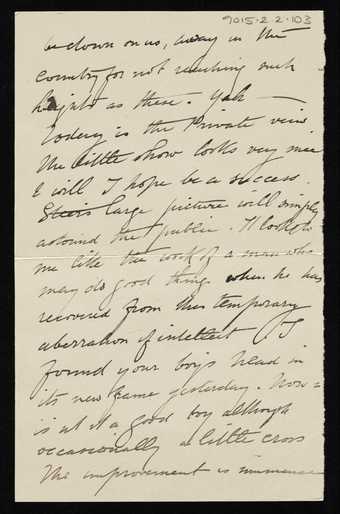 9015.2.2.103
be down on us, away in the
country for not reaching such
heights as these. Yah —
Today is the Private view
The little show looks very nice
& will I hope be a success.
Steers large picture will simply
astound the public. It looks to
me like the work of a man who
may do good things when he has
recovered from this temporary
aberration of intellect. I
found your boys head in
its new frame yesterday.
is at it a good boy although
occasionally a little cross
The improvement is immense